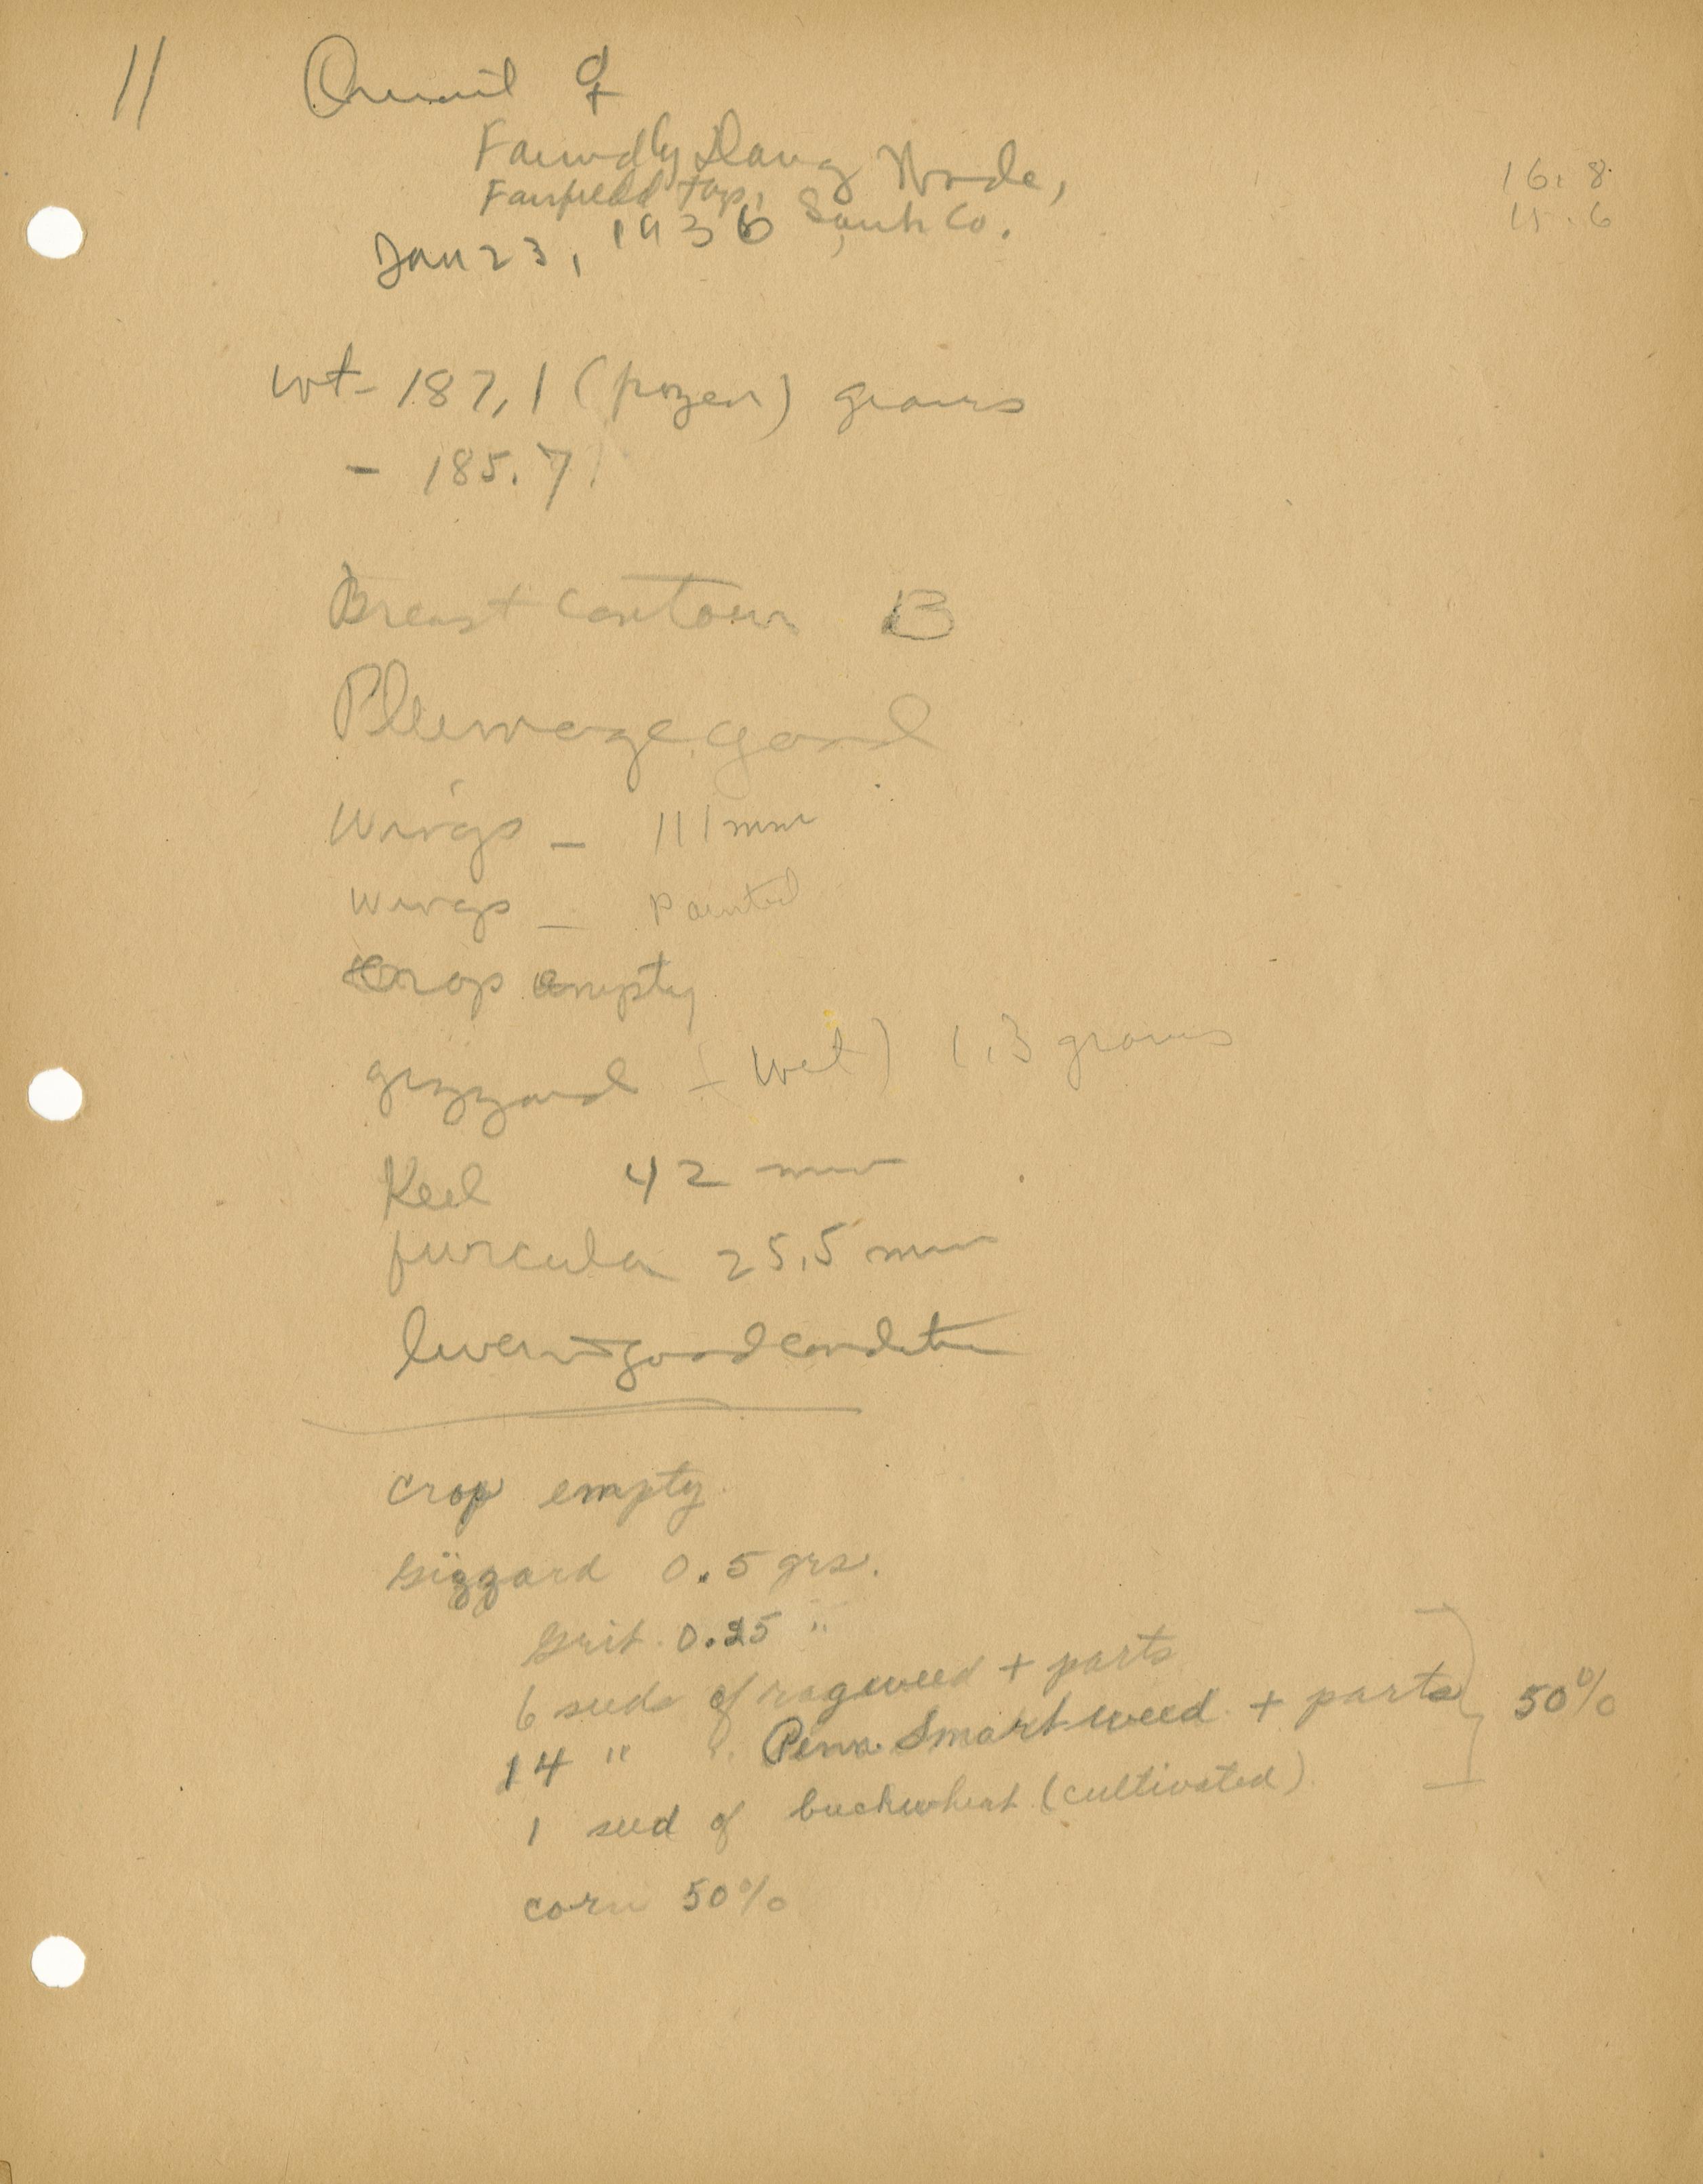 11 Quail ♀
Found by Doug Wade,
Fairfield Twp, Sauk Co.
Jan 23, 1936
16.8
11.6
wt- 187.1 (frozen) grams
- 185.7
Breast contour B
Plumage good
Wings - 111 mm
Wings - Pointed
Crop empty
gizzard - (wet) 1.3 grams
Keel 42 mm
furcula 25.5 mm
liver in good condition
crop empty
Gizzard 0.5 grs.
Grit. 0.25 "
6 seeds of ragweed + parts
14 " " Penn. Smartweed + parts } 50%
1 seed of buckwheat (cultivated)
corn 50%